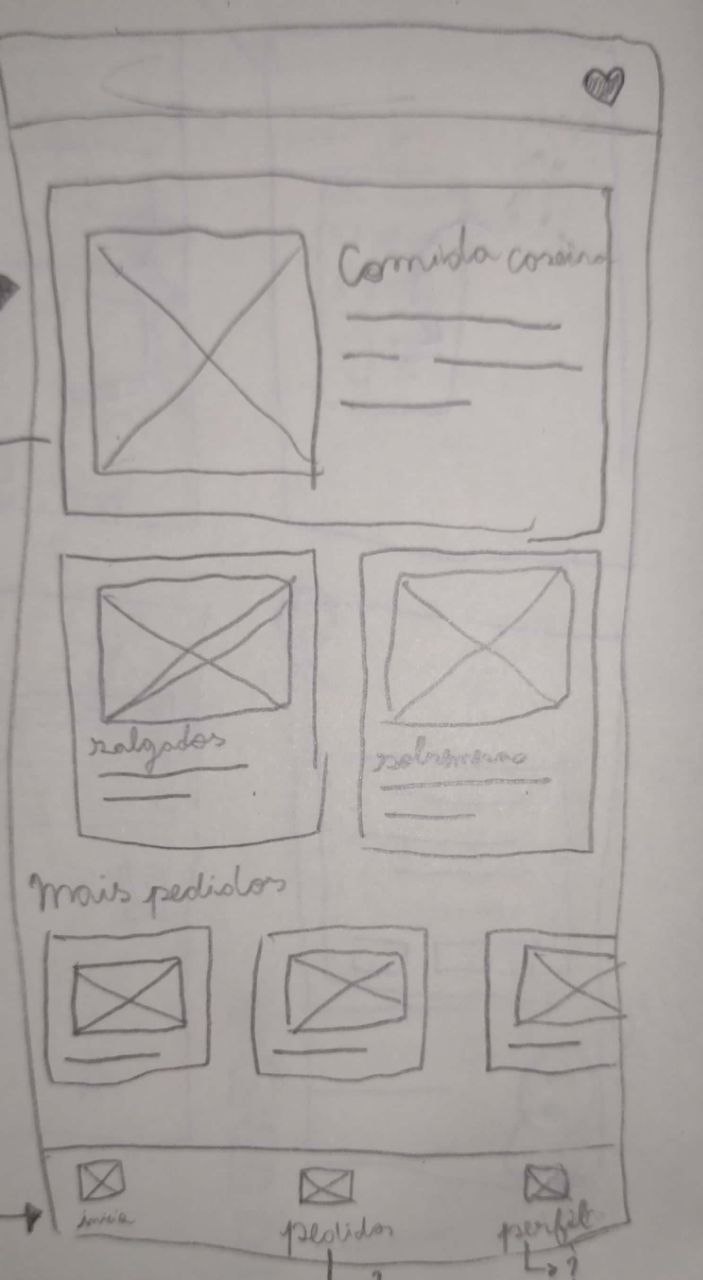 Comida caseira
salgados
sobremesa
Mais pedidos
inicio
pedidos
perfil
?
?